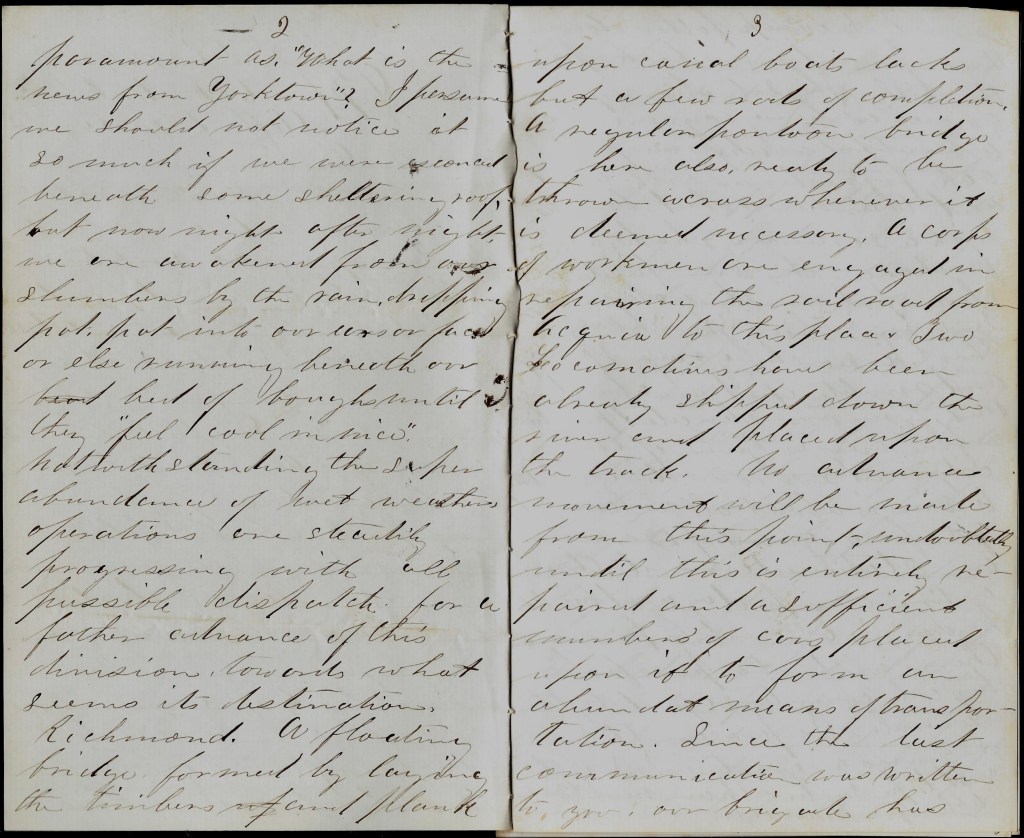 2
paramount as. "What is the
news from Yorktown"? I persume
we should not notice it
so much if we were
beneath some sheltering roof,
but now night after night,
we are awakened from our
slumbers by the rain, dripping
pat, pat into our ears or face
or else running beneath our
bed of boughs until
they "feel cool an nice".
Notwithstanding the super
abundance of wet weather
operations are steadily
progressing with all
possible dispatch for a
father advance of this
division, towards what
seems its destination,
Richmond. A floating
bridge, formed by laying
the timbers and plank
3
upon canal boats lacks
but a few rods of completion.
A regular pontoon bridge
is here also, ready to be
thrown across whenever it
is deemed necessary. A corps
of workmen are engaged in
repairing the rail road from
Acquia to this place. Two
Locomotives have been
already shipped down the
river and placed upon
the track. No advance
movement will be made
from this point, undoubtedly
until this is entirely re-
paired and a sufficient
number of cars placed
upon it to form an
abundat means of transpor-
tation. Since the last
communication was written
to, you, our brigade has